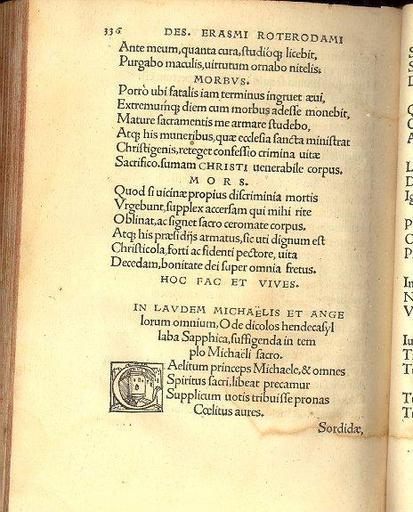 336 DES. ERASMI ROTERODAMI
Ante meum, quanta cura, studioq; licebit,
Purgabo maculis, uirtutum ornabo nitelis.
MORBVS.
Porro ubi fatalis iam terminus ingruet æui,
Extremumq; diem cum morbus adesse monebit,
Mature sacramentis me armare studebo,
Atq; his muneribus, quæ ecclesia sancta ministrat
Christigenis, reteget confessio crimina uitæ
Sacrifico. sumam CHRISTI uenerabile corpus.
MORS.
Quod si uicinæ propius discriminia mortis
Vrgebunt, supplex accersam qui mihi rite
Oblinat, ac signet sacro ceromate corpus.
Atq; his præsidijs armatus, sic uti dignum est
Christicola, forti ac fidenti pectore, uita
Decedam, bonitate dei super omnia fretus.
HOC FAC ET VIVES.
IN LAVDEM MICHAËLIS ET ANGE
lorum omnium, Ode dicolos hendecasyl
laba Sapphica, suffigenda in tem
plo Michaëli sacro.
CAelitum princeps Michaele, & omnes
Spiritus sacri, libeat precamur
Supplicum uotis tribuisse pronas
Cœlitus aures.
Sordidæ,